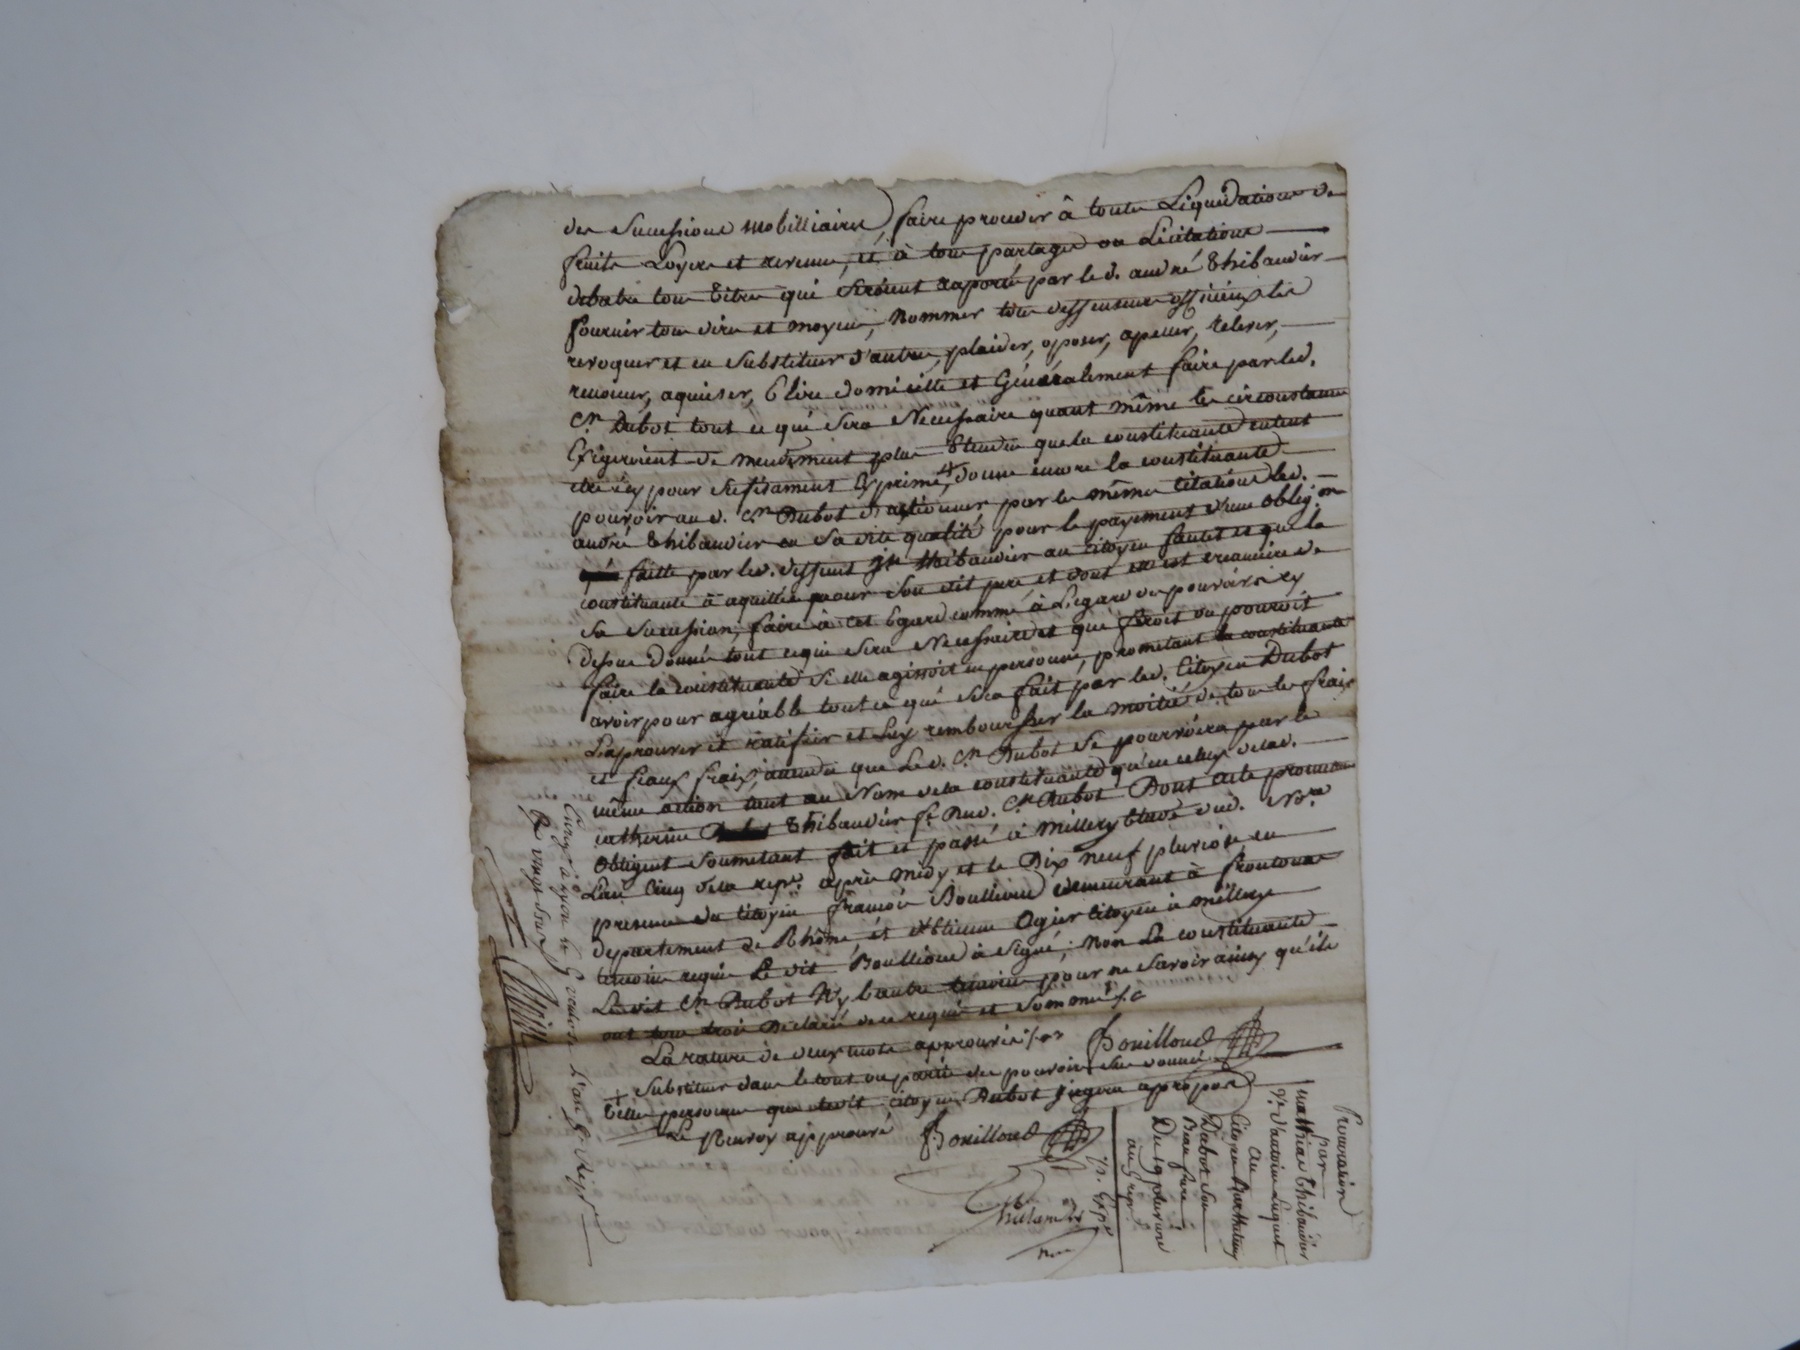 des Sucessions mobilliaires, faire proceder à toute Liquidations de
fruits Loyers et revenus, et à tous partages ou Licitations
debatre tous titres qui seroient raportés par led. andré Thibaudier
fournir tous dires et moyens, Nommer tous deffenseurs officieux les
revoquer et en Substituer d'autres, plaider, oposer, apeller, relever,
renoncer, aquieser, Elire domicille et Généralement faire par led.
Cn. Dubot tout ce qui sera Necessaire quant même les circonstances
Exigeroient de mendement plus Etendu que la constituante entent
être icy pour sufisament Exprimé, + donne encore la constituante
pouvoir au d. Cn. Dubot d'actionner par les mêmes citations led.
andré Thibaudier en sa dite qualité pour le payement d'une oblig.on
faitte par led. deffunt Thibaudier au citoyen et que la
constituante à aquittée pour son dit pere et dont elle est creancière de
Sa Sucession, faire à cet Egard comme à L'egard des pouvoirs cy
dessus Donnés tout ce qui sera Necessaire et que feroit ou pouroit
faire la constituante si elle agissoit en personne, prometant la constituante
avoir pour agréable tout ce qui sera fait par led. Citoyen Dubot
L'aprouver et ratifier et Luy rembourser la moitié de tous les fraix
et faux fraix, attendu que Led. Cn. Dubot se pourvoira par la
même action tant au Nom de la constituante qu'en celuy de lad.
catherine Thibaudier fe. Dud. Cn. Dubot Dont acte promu
Obligent Soumetant fait et passé à Millery Etude dud. No.re
L'an Cinq de la repe. après midy et le Dix neuf pluviose en
presence du Citoyen françois Bouilloud demeurant à frontonas
departement de Rhône, et Etienne Ogier Citoyen à millery
temoins requis Le dit Bouilloud à signé, Non La constituante
Le dit Cn. Dubot Ny L'autre temoin pour ne Savoir ainsy qu'ils
ont tous trois Declaré de ce requis et sommés /.
La rature de deux mots approuvée /.
Bouilloud
+ Substituer dans le tout ou partie des pouvoirs sus donnés
telle personne que le dit citoyen Dubot jugera apropos
Le Renvoy approuvé Bouilloud
p. Expé
Procuration
par
mathiae Thibaudier
Ve. d'antoine Liquet
au
Citoyen Barthelemy
Dubot son
Beaufrere
Du 19 pluviose
an 5 rep.